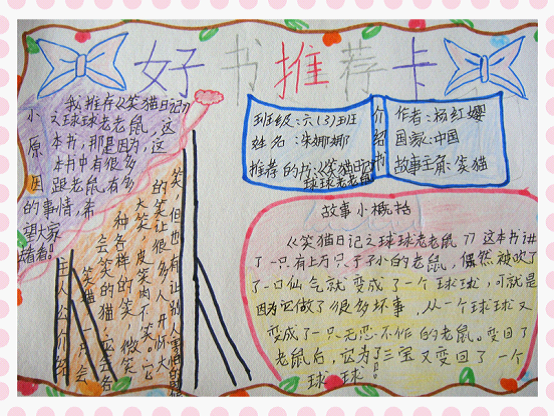 好书推荐卡
小原因
我推荐《笑猫日记》
之球球老老鼠,这
本书,那是因为,这
本书中有很多
跟老鼠,有多
的事情,希
望大家
去看看!
班级:六(3)班
姓名:朱娜娜
推荐的书:《笑猫日记
球球老老鼠》
介绍书
作者:杨红婴
国家:中国
故事主角:笑猫
故事小概括
《笑猫日记之球球老老鼠》这本书讲
了一只有上万只子子小的老鼠,偶然被吹了
了一口仙气就变成了一个球球,可就是
因为它做了很多坏事,从一个球球又
变成了一只无恶不作的老鼠。变回了
老鼠后,它为了三宝又变回了一个
球球!
主人公介绍
笑猫
会笑的猫
种各样的笑
大笑、皮笑肉不笑、微笑
的笑让很多人开怀大
笑,但也有让别人害怕的